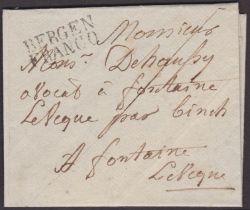 BERGEN
FRANCO
Monsieur
Mons: Dehaussy
avocat à fontaine
Leveque par binch
A fontaine
Leveque